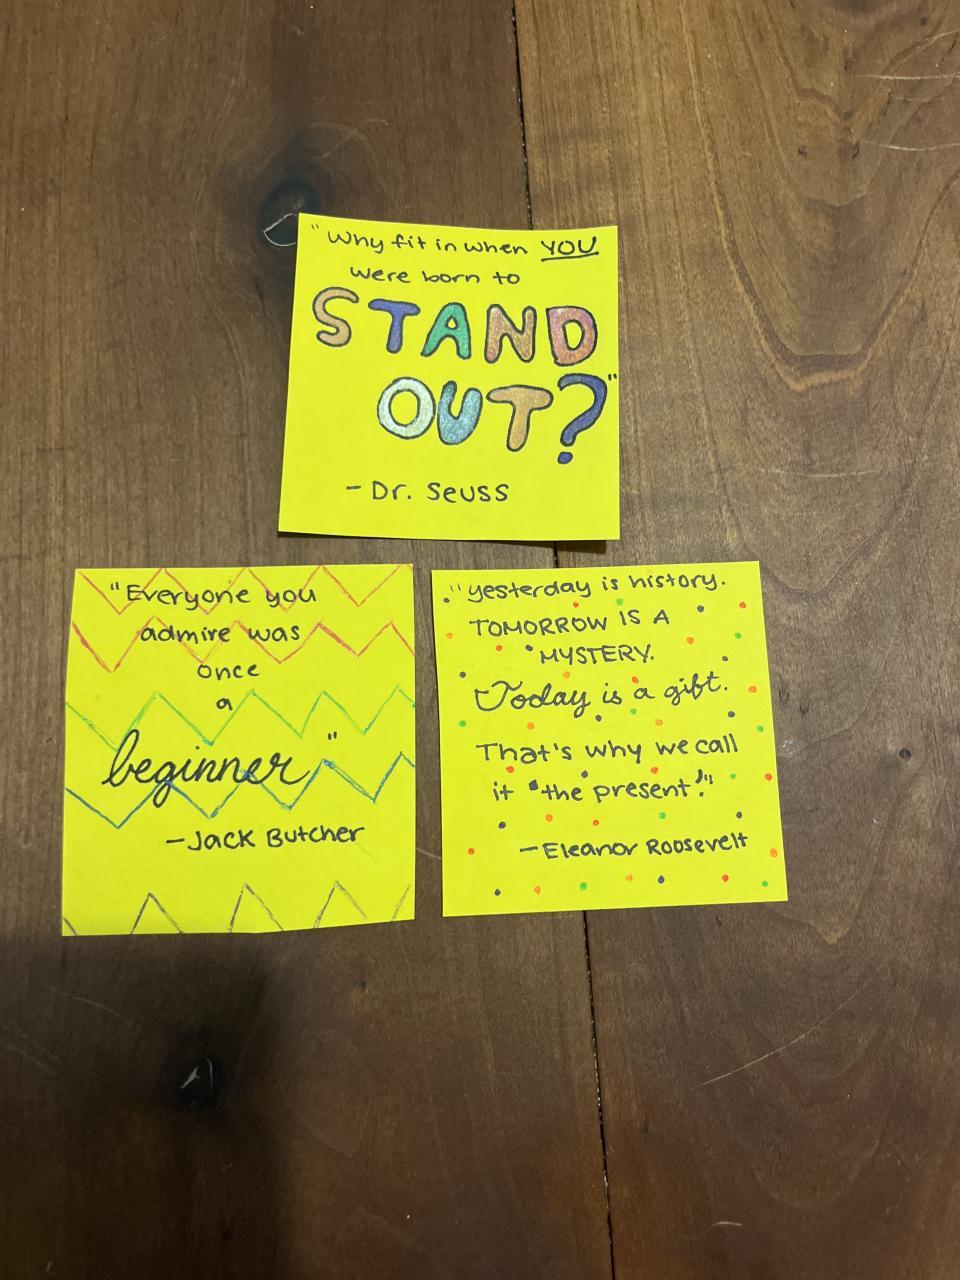 "Why fit in when YOU
were born to
STAND
OUT?"
- Dr. Seuss
"Everyone you
admire was
once
a
beginner"
- Jack Butcher
"yesterday is history.
TOMORROW IS A
MYSTERY.
Today is a gift.
That's why we call
it "the present"."
- Eleanor Roosevelt